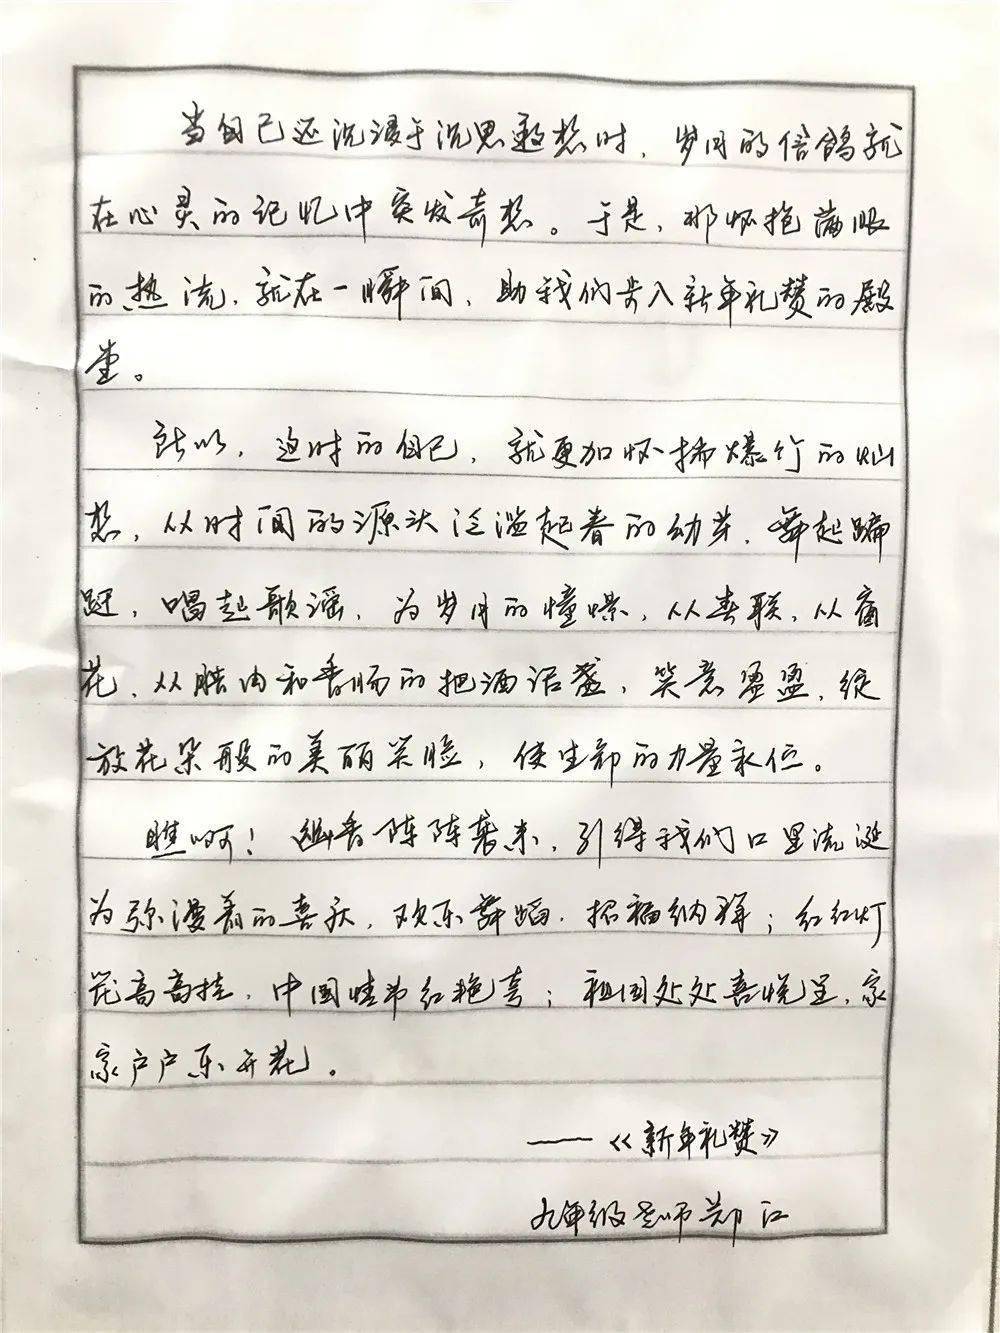 当自己还沉浸于沉思遐想时，岁月的信鸽就
在心灵的记忆中突发奇想。于是，那怀抱满眼
的热流，就在一瞬间，助我们步入新年礼赞的殿
堂。
所以，这时的自己，就更加怀揣爆竹的灿
想，从时间的源头泛滥起春的幼芽，舞起蹁
跹，唱起歌谣，为岁月的憧憬，从春联，从窗
花，从腊肉和香肠的把酒话盏，笑意盈盈，绽
放花朵般的美丽笑脸，使生命的力量永恒。
瞧啊！幽香阵阵袭来，引得我们口里流涎
为弥漫着的喜庆，欢乐舞蹈，招福纳祥；红红灯
笼高高挂，中国情节红艳奇；祖国处处喜悦呈，家
家户户乐开花。
——《新年礼赞》
九年级老师郑江